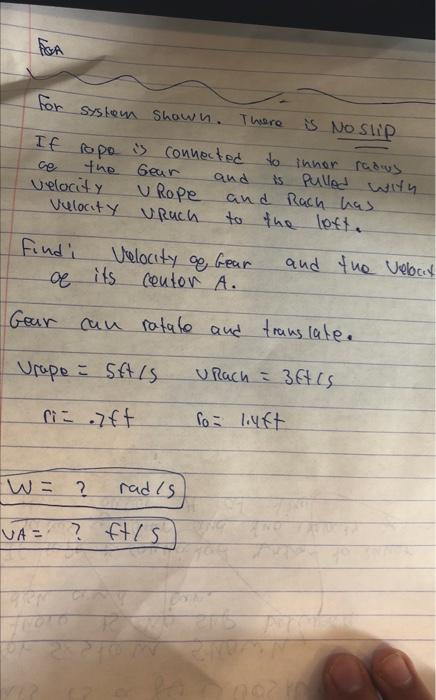 FOR
For system shown. There is NO SLIP
If rope is connected to inner radius
of the Gear and is Pulled with
velocity VRope and Rach has
velocity VRach to the left.
Find: Velocity of Gear and the Velocit
of its center A.
Gear can rotate and translate.
Vrope = 5ft/s VRach = 3ft/s
ri = .7ft ro = 1.4ft
W = ? rad/s
VA = ? ft/s